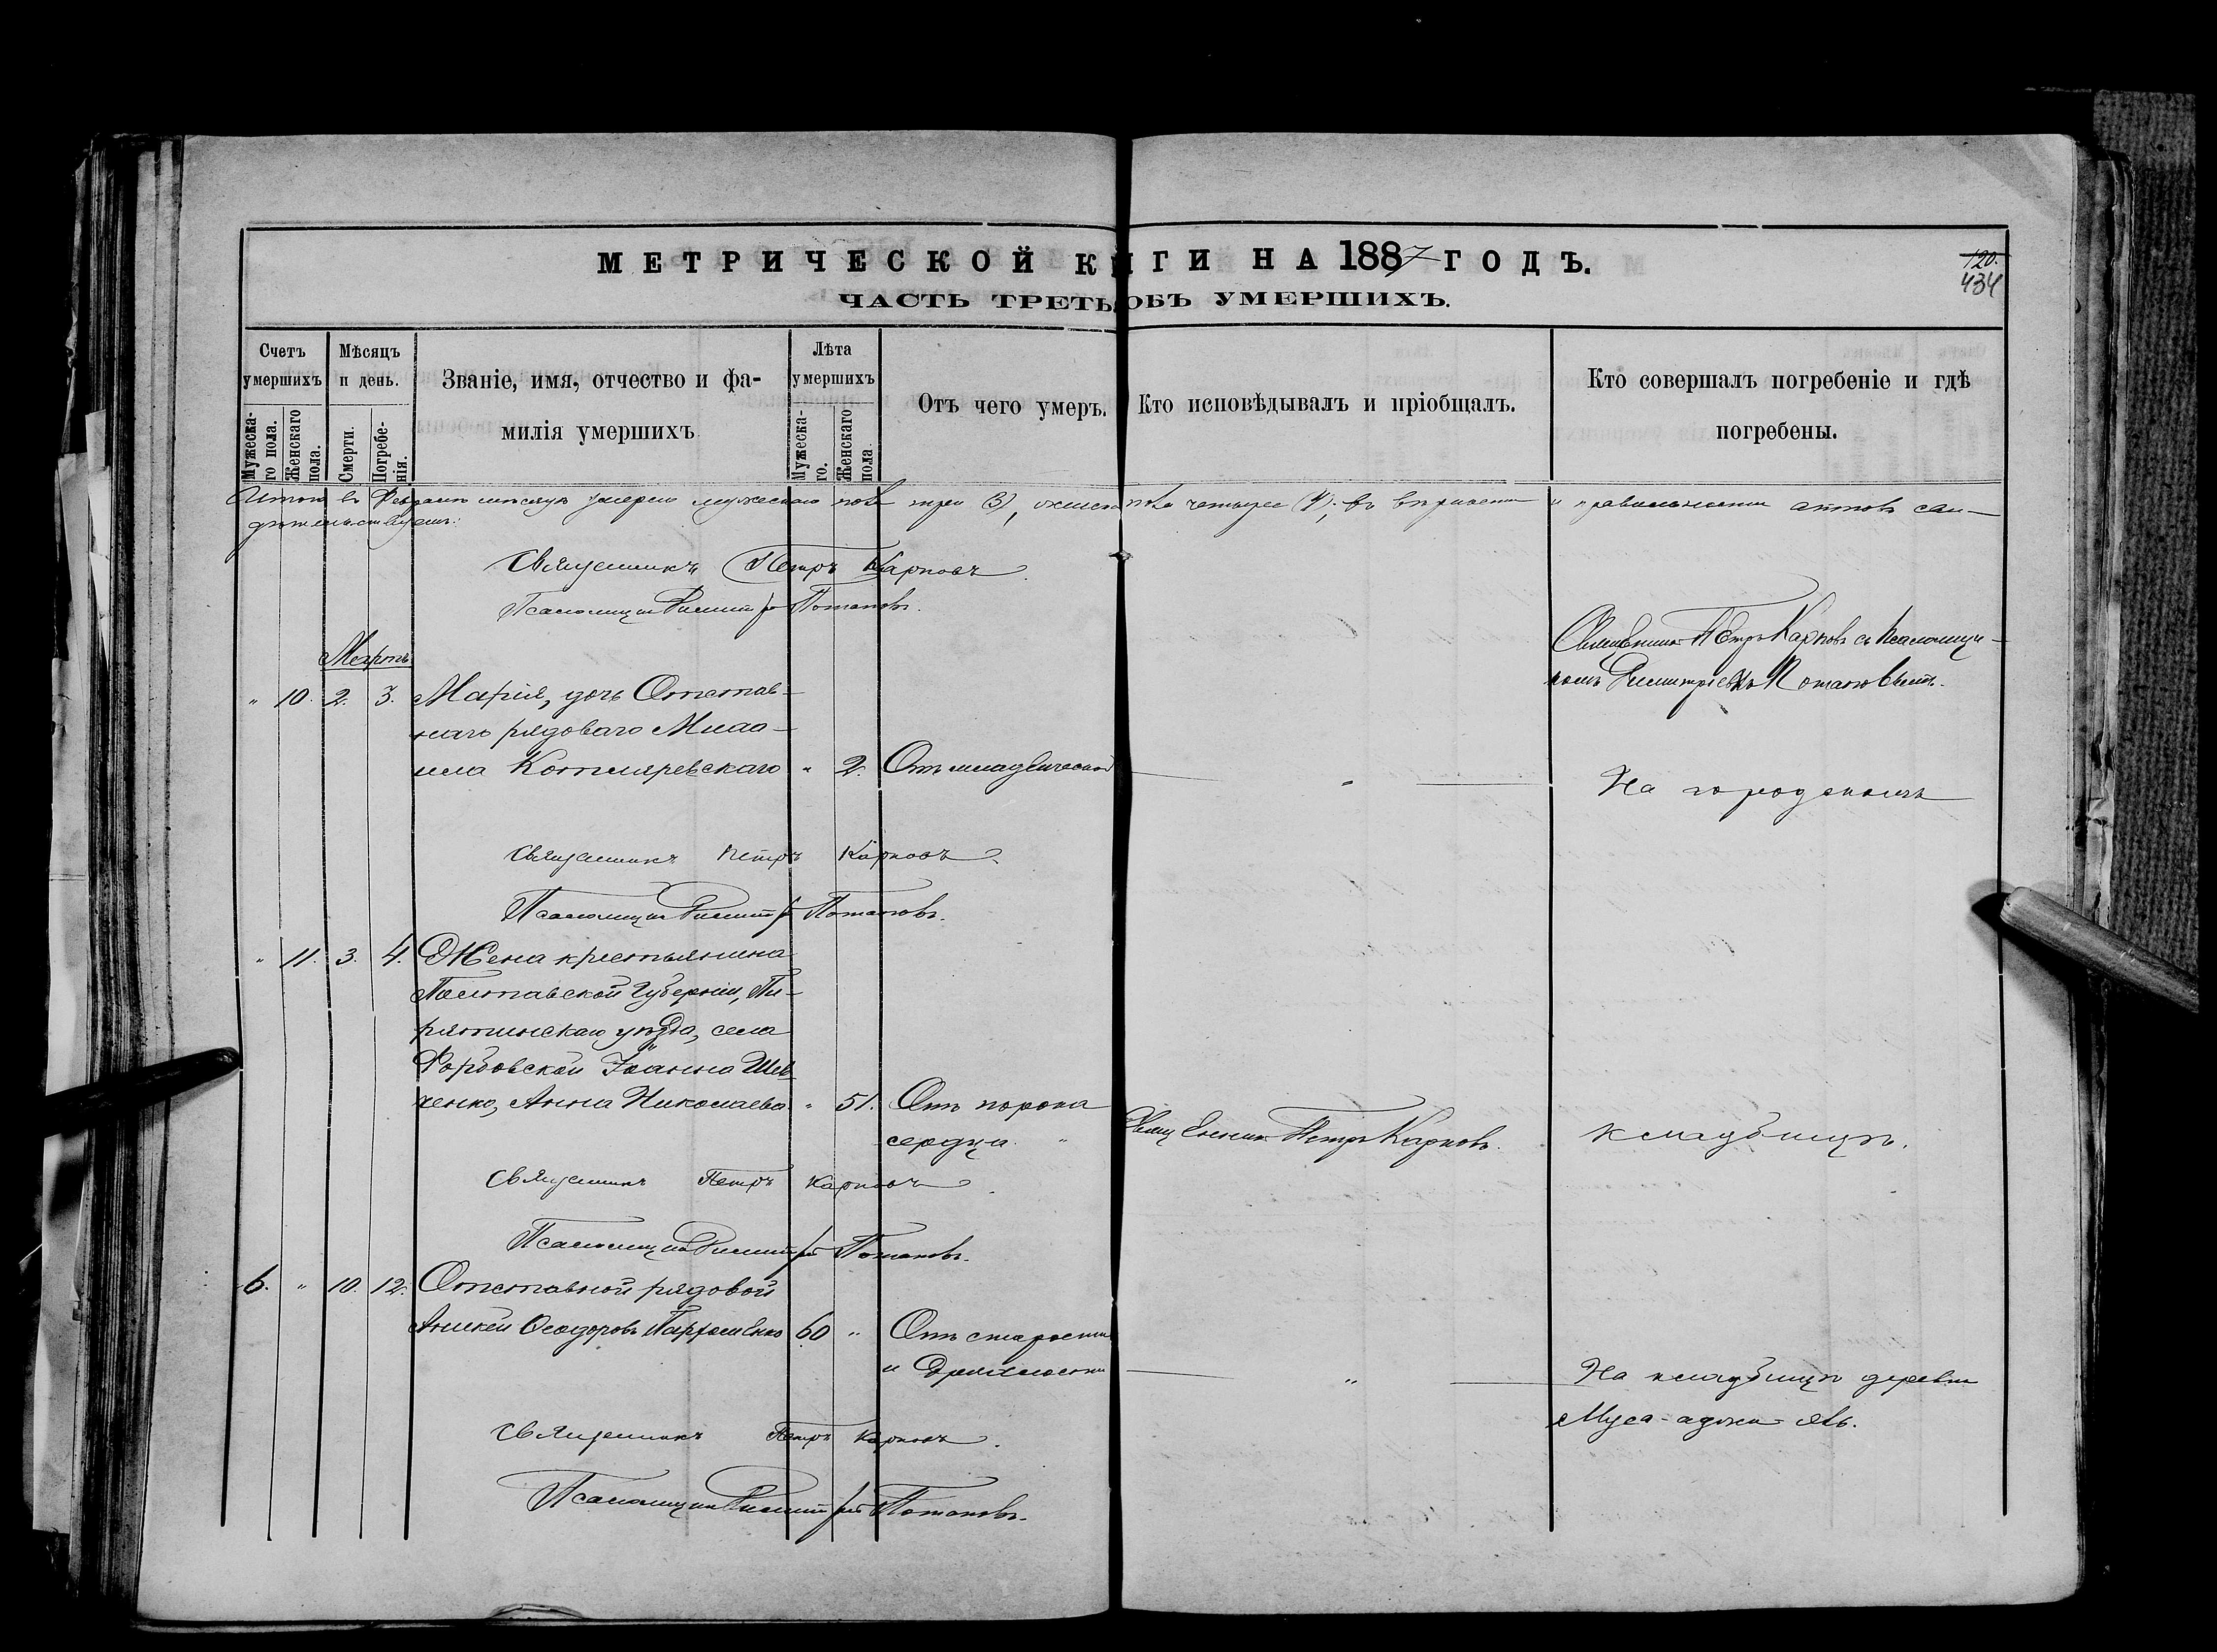 МЕТРИЧЕСКОЙ КНИГИ НА 1887 ГОДЪ.
ЧАСТЬ ТРЕТЬ ОБЪ УМЕРШИХЪ.
120.
434
Счетъ умершихъ
Мужеска-го пола.
Женскаго пола.
Мѣсяцъ и день.
Смерти.
Погребе-нія.
Званіе, имя, отчество и фа-
милія умершихъ
Лѣта умершихъ
Мужеска-го.
Женскаго пола
Отъ чего умеръ.
Кто исповѣдывалъ и пріобщалъ.
Кто совершалъ погребеніе и гдѣ
погребены.
Итого въ Февралѣ мѣсяцѣ умерло мужескаго пола три (3), женска пола четыре (4); въ вѣрности и правильности актовъ сви-
дѣтельствуемъ:
Священникъ Петръ Карповъ
Псаломщикъ Димитрій Потаповъ.
Мартъ
" 10. 2. 3. Марія, дочь Отстав-
наго рядоваго Миха-
ила Котляревскаго " 2. Отъ младенческой "
Священникъ Петръ Карповъ съ Псаломщи-
комъ Димитріемъ Потаповымъ.
На городскомъ
Священникъ Петръ Карповъ
Псаломщикъ Димитрій Потаповъ.
" 11. 3. 4. Жена крестьянина
Полтавской Губерніи, Пи-
рятинскаго уѣзда, села
Іоанна Шев-
ченко, Анна Николаева " 51. Отъ порока
сердца. " Священник Петръ Карповъ. кладбищѣ.
Священникъ Петръ Карповъ
Псаломщикъ Димитрій Потаповъ.
6. " 10. 12. Отставной рядовой
Феодоровъ Пархоменко 60 " Отъ старости
и дряхлости "
На кладбищѣ деревни
Муса-аджи Эль.
Священникъ Петръ Карповъ.
Псаломщикъ Димитрій Потаповъ.